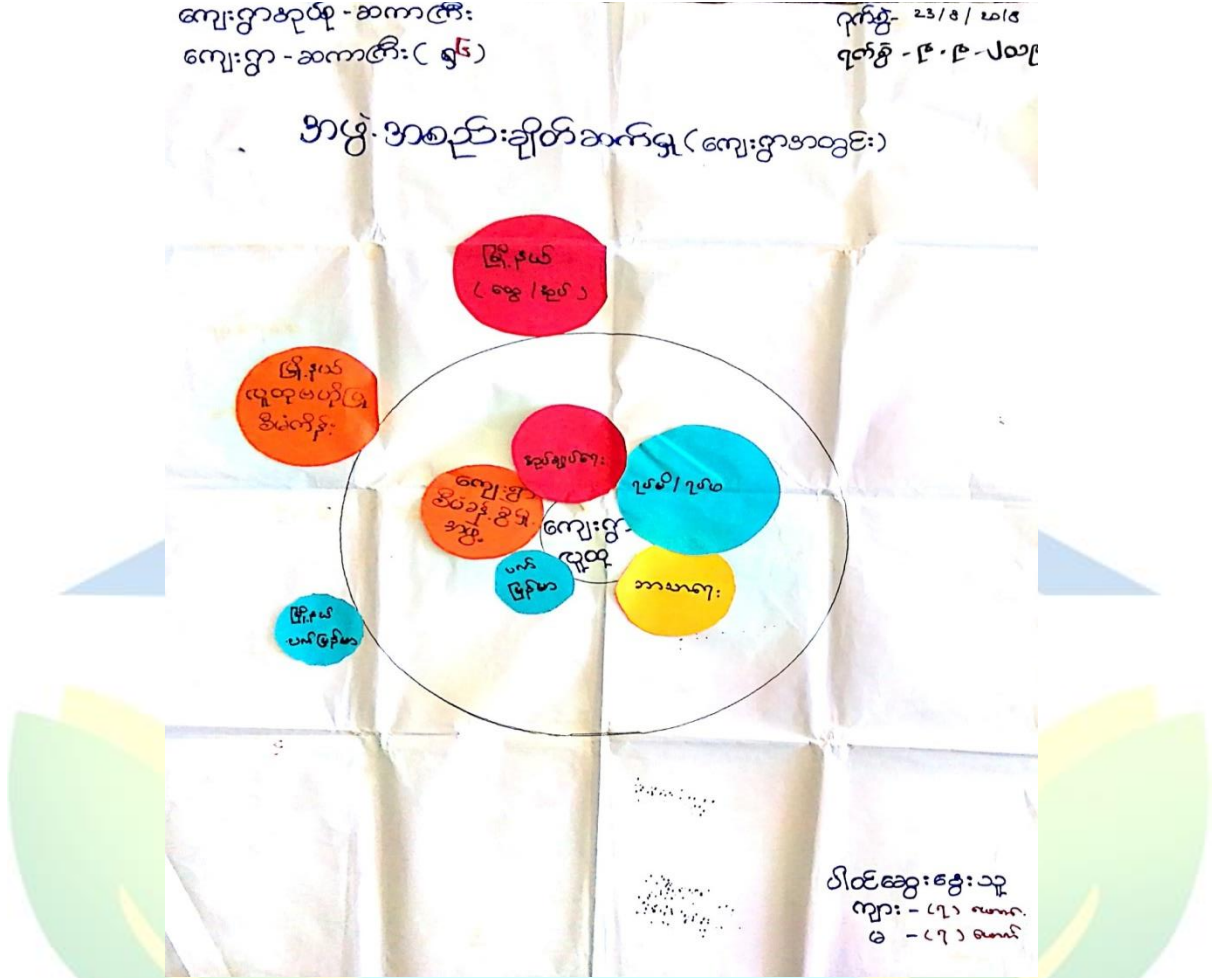 ကျေးရွာအုပ်စု - ဆကာကြီး
ကျေးရွာ - ဆကာကြီး (
ရက်စွဲ- 23/8/2018
ရက်စွဲ -
အဖွဲ့အစည်းချိတ်ဆက်မှု (ကျေးရွာအတွင်း)
မြို့နယ်
(ထွေ / အုပ်)
မြို့နယ်
လူထုဗဟိုပြု
စီမံကိန်း
အုပ်ချုပ်ရေး
ရပ်မိ / ရပ်ဖ
ကျေးရွာ
အဖွဲ့
ကျေးရွာ
လူထု
ပတ်
မြန်မာ
ဘာသာရေး
မြို့နယ်
ပတ်မြန်မာ
ပါဝင်ဆွေးနွေးသူ
ကျား - (၇) ယောက်
မ - (၇) ယောက်